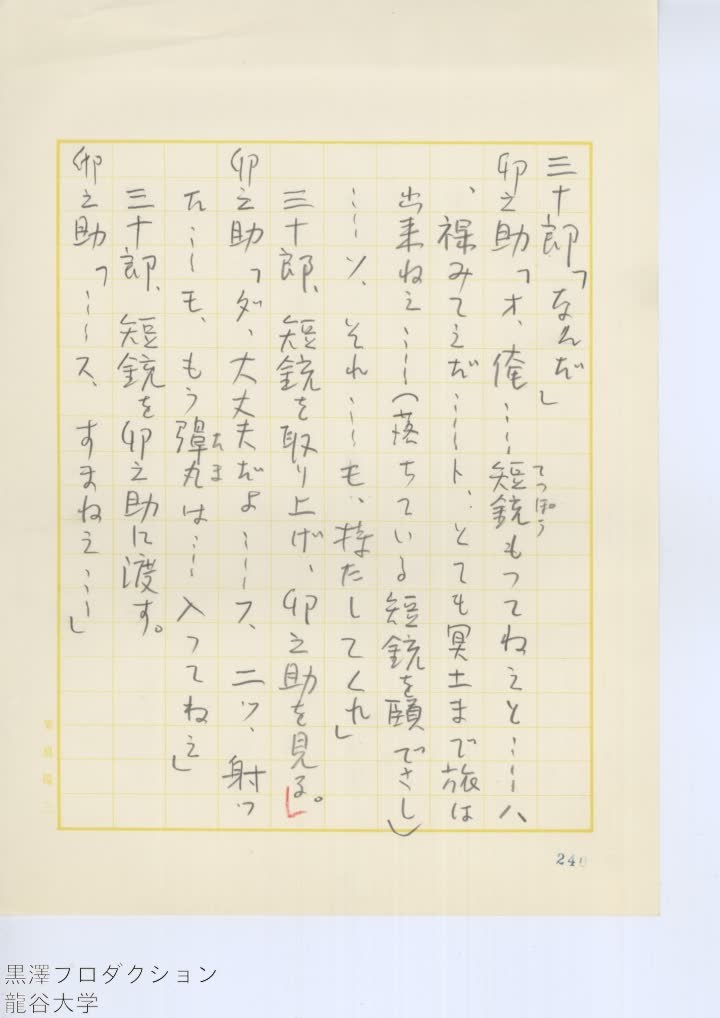 三十郎「なんだ」
卯之助「オ、俺……短銃もってねえと……ハ
てっぽう
、裸みてえだ……ト、とても冥土まで旅は
出来ねえ……(落ちている短銃を頤でさし)
……ソ、それ……も、持たしてくれ」
三十郎、短銃を取り上げ、卯之助を見る。
卯之助「ダ、大丈夫だよ……フ、二ツ、射ッ
た……モ、もう弾丸は……入ってねえ」
たま
三十郎、短銃を卯之助に渡す。
卯之助「……ス、すまねえ……」
黒澤プロダクション
龍谷大学